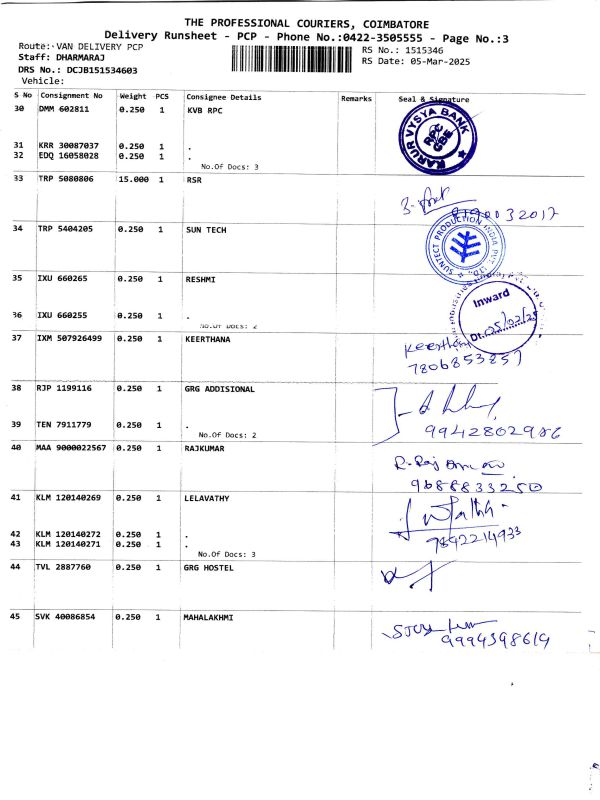 THE PROFESSIONAL COURIERS, COIMBATORE
Delivery Runsheet - PCP - Phone No.:0422-3505555 - Page No.:3
Route: VAN DELIVERY PCP
RS No.: 1515346
Staff: DHARMARAJ
RS Date: 05-Mar-2025
DRS No.: DCJB151534603
Vehicle:
S No Consignment No Weight PCS Consignee Details Remarks Seal & Signature
30 DMM 602811 0.250 1 KVB RPC
KARUR VYSYA BANK
RPC CBE
31 KRR 30087037 0.250 1 .
32 EDQ 16058028 0.250 1 .
No.Of Docs: 3
33 TRP 5080806 15.000 1 RSR
34 TRP 5404205 0.250 1 SUN TECH
SUNTECT PRODUCTION INDIA PVT. LTD.
35 IXU 660265 0.250 1 RESHMI
36 IXU 660255 0.250 1 .
No.Of Docs: 2
Inward
Dt. 05/03/25
37 IXM 507926499 0.250 1 KEERTHANA
Keerthana
7806853857
38 RJP 1199116 0.250 1 GRG ADDISIONAL
39 TEN 7911779 0.250 1 .
No.Of Docs: 2
9942802986
40 MAA 9000022567 0.250 1 RAJKUMAR
9688833250
41 KLM 120140269 0.250 1 LELAVATHY
42 KLM 120140272 0.250 1 .
43 KLM 120140271 0.250 1 .
No.Of Docs: 3
7892214933
44 TVL 2887760 0.250 1 GRG HOSTEL
45 SVK 40086854 0.250 1 MAHALAKHMI